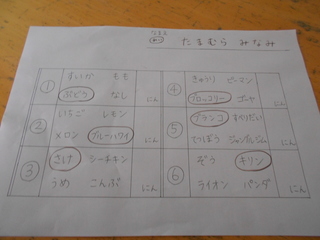 なまえ
たまむら みなみ
① すいか もも
ぶどう なし
にん
② いちご レモン
メロン ブルーハワイ
にん
③ さけ シーチキン
うめ こんぶ
にん
④ きゅうり ピーマン
ブロッコリー ゴーヤ
にん
⑤ ブランコ すべりだい
てつぼう ジャングルジム
にん
⑥ ぞう キリン
ライオン パンダ
にん